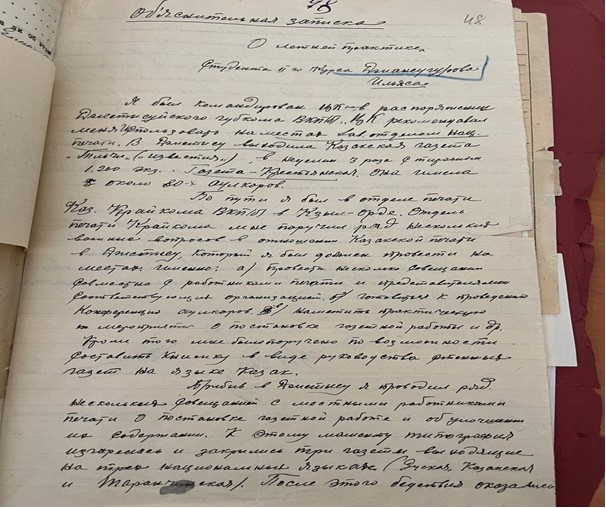 48
Объяснительная записка
О летней практике
Студента II го курса Джансугурова
Ильяса
Я был командирован ЦК-ом в распоряжении
Джетысуйского губкома ВКПб. ЦК рекомендовал
меня использовать на местах зав отделом нац.
печати. В Джетысу выходила Казакская газета
"Тілші" (известия), в неделии 3 раза с тиражом
1.200 экз. Газета – Крестьянская. Она имела
около 80-х аулкаров.
По пути я был в отделе печати
Каз. Крайкома ВКПб в Кзыл-Орде. Отдел
печати Крайкома мне поручил ряд несколких
вопросов в отношении Казакской печати
в Джетысу, который я был должен провести на
местах именно: а) провести несколко совещании
совместно с работниками печати и представителями
соответствующих организаций, б) готовиться к проведению
Конференции аулкаров. в) наметить практическую
мероприятия о постановке газетной работы и др.
Кроме того мне было поручено по возможности
составить книжку в виде руководства
газет на языке Казак.
Прибыв в Джетысу я проводил ряд
несколких совещаний с местными работниками
печати о постановке газетной работе и об улучшении
их содержании. К этому моменту типография
изгорелась и закрылись три газеты выходящие
на трех национальных языках (Руская Казакская
и Таранчинская). После этого бедствия оказались